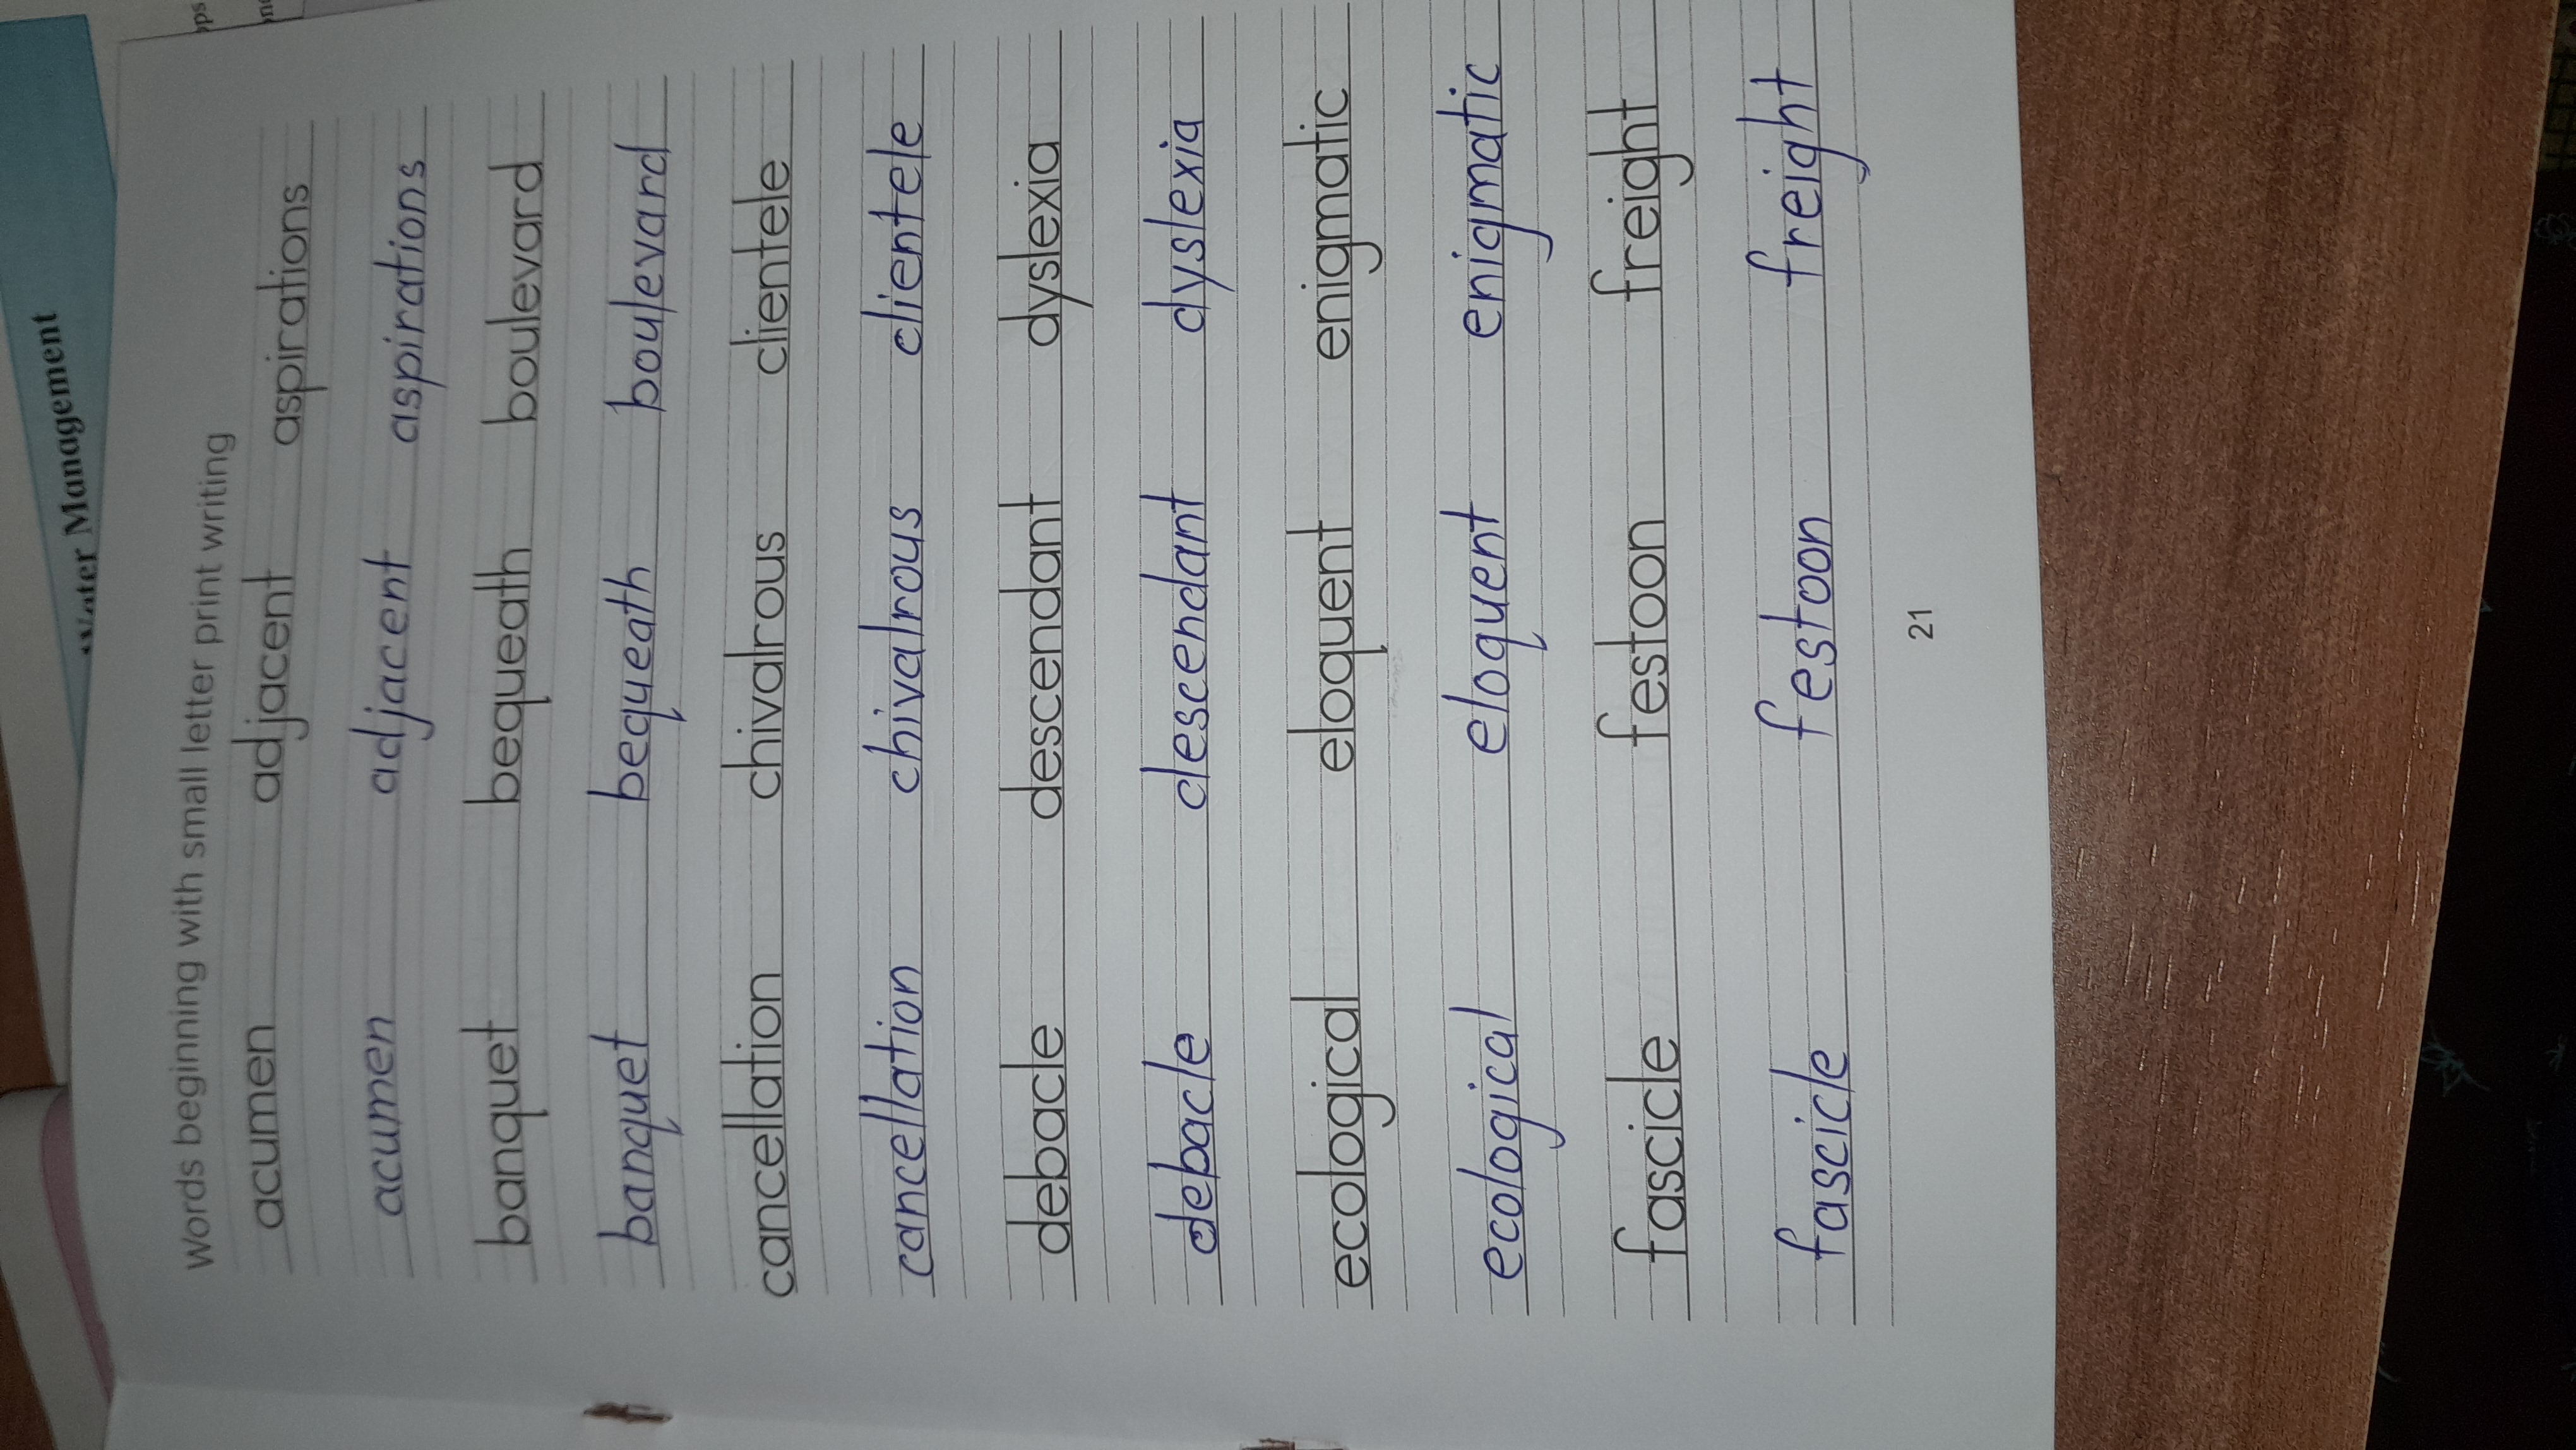 Water Management
Words beginning with small letter print writing
acumen adjacent aspirations
acumen adjacent aspirations
banquet bequeath boulevard
banquet bequeath boulevard
cancellation chivalrous clientele
cancellation chivalrous clientele
debacle descendant dyslexia
debacle descendant dyslexia
ecological eloquent enigmatic
ecological eloquent enigmatic
fascicle festoon freight
fascicle festoon freight
21